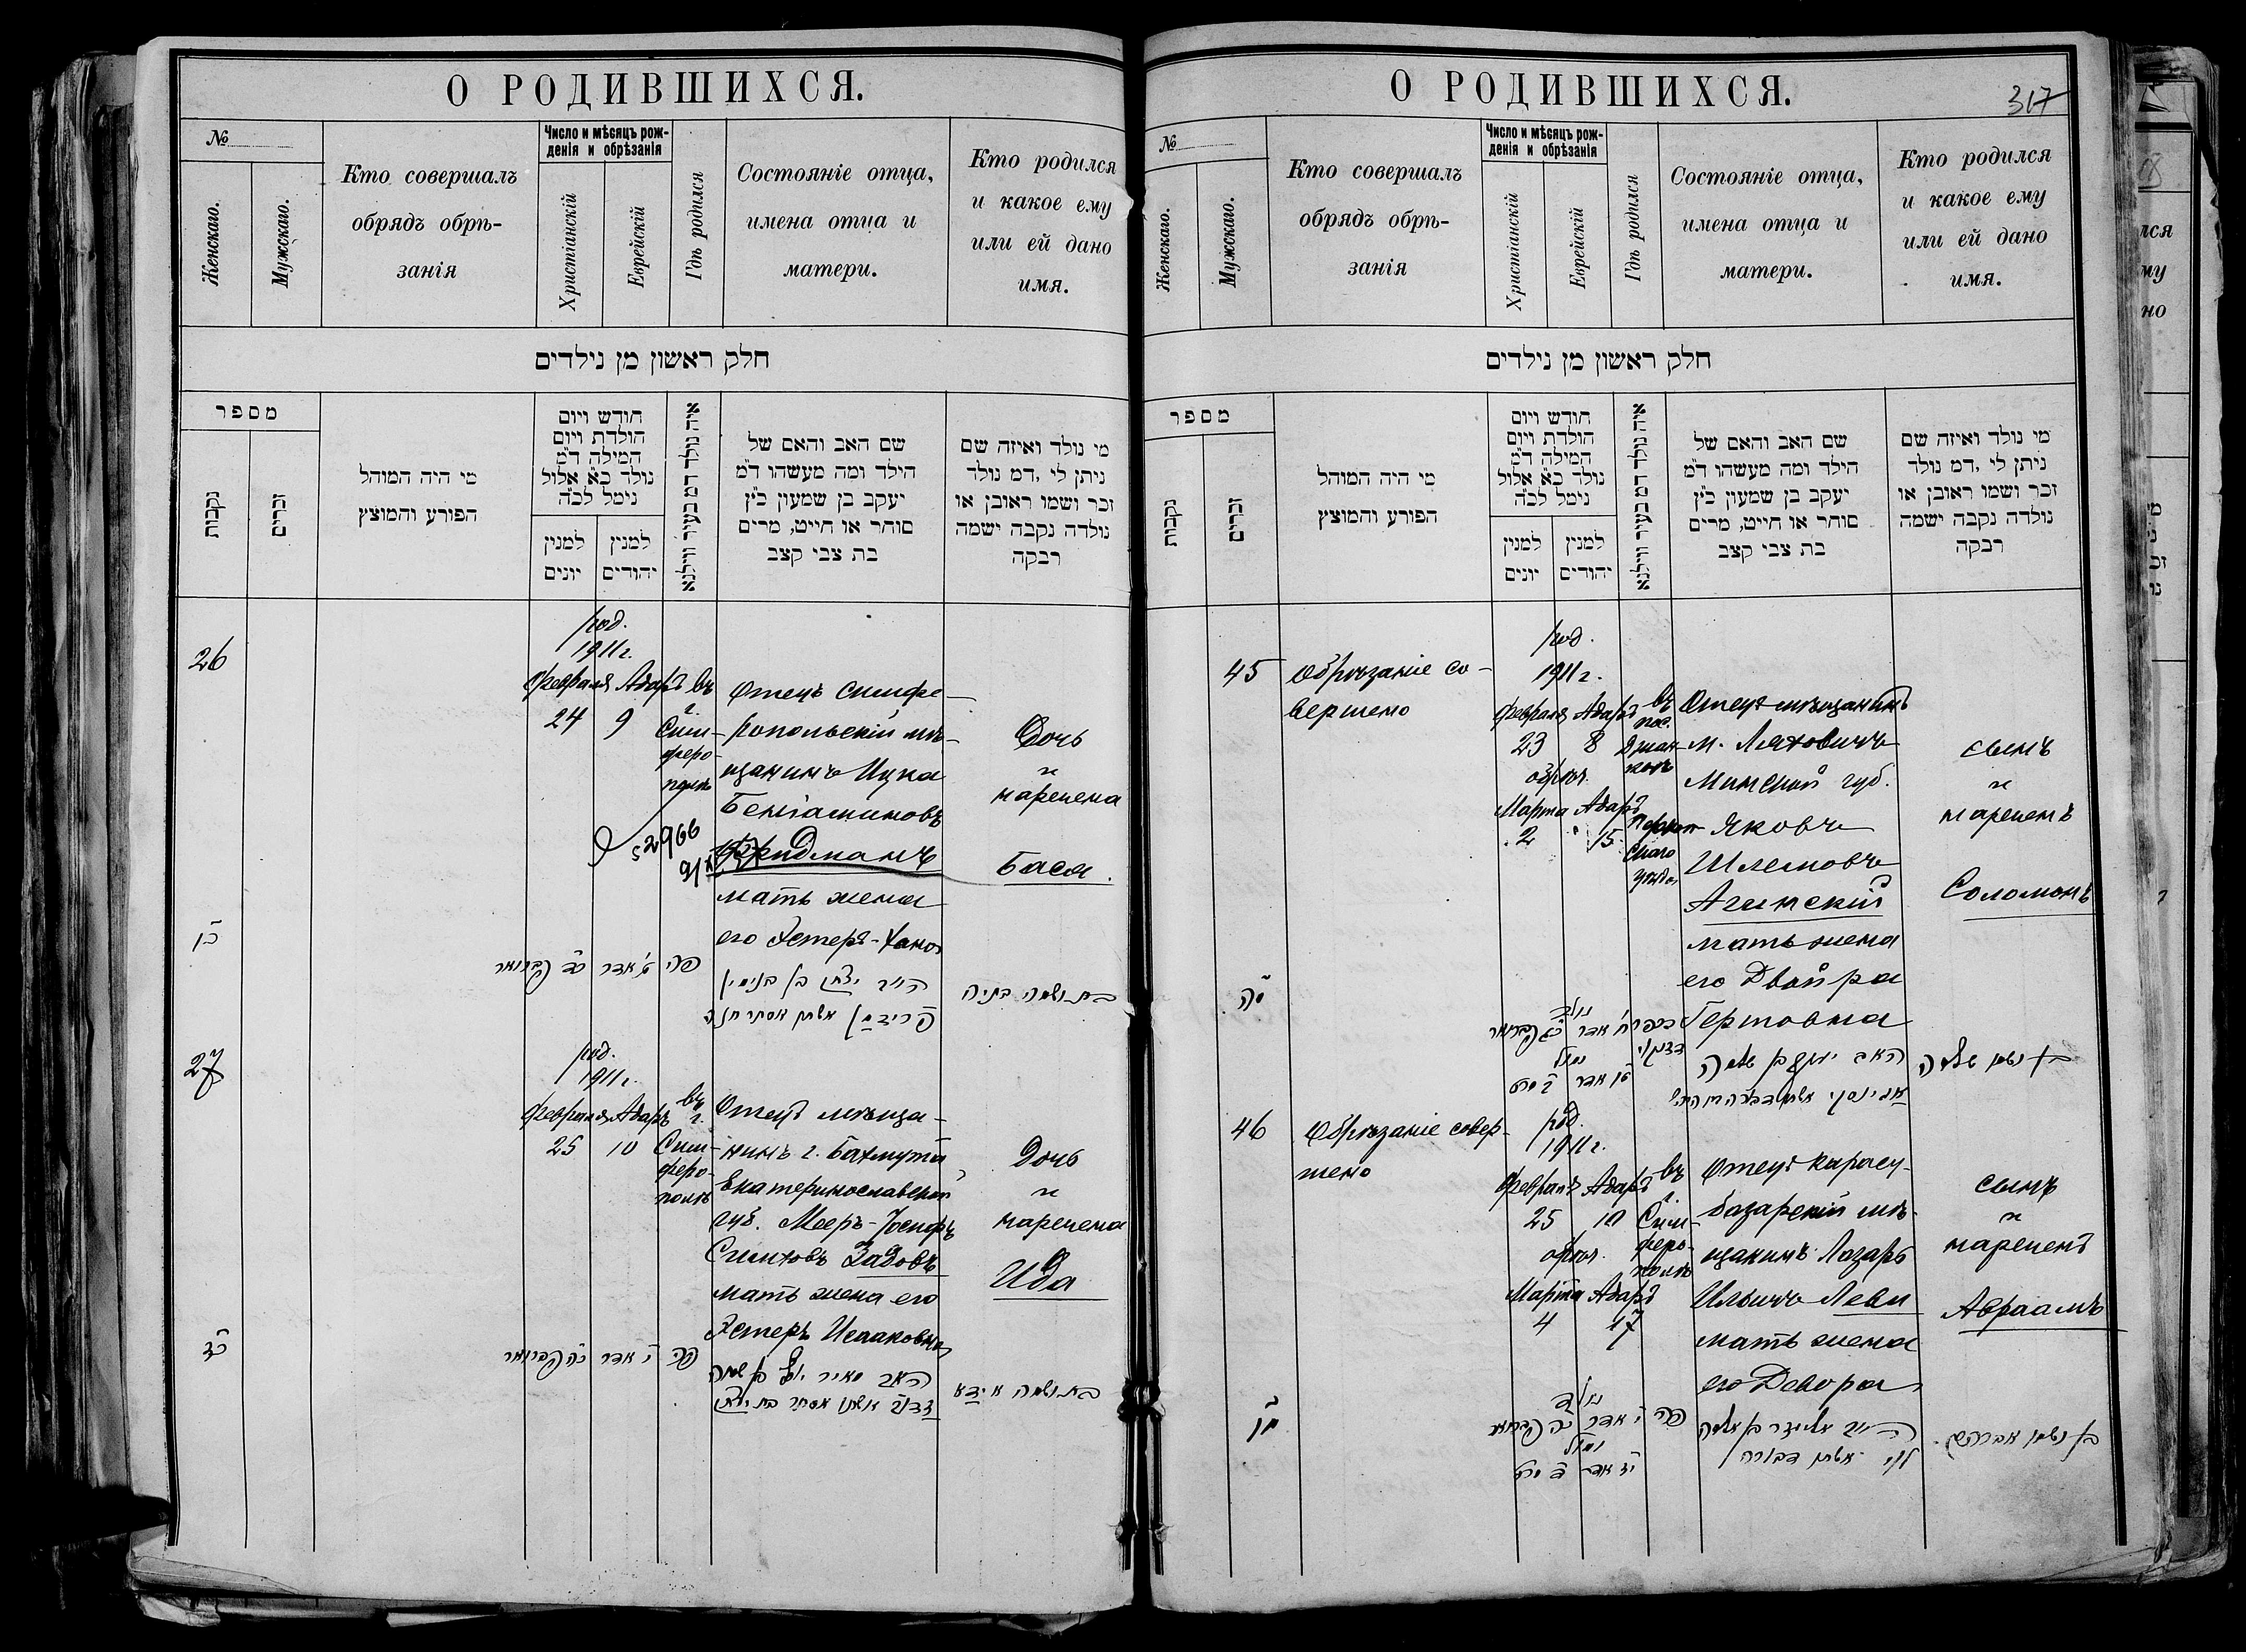 О РОДИВШИХСЯ.
№
Женскаго.
Мужскаго.
Кто совершалъ
обрядъ обрѣ-
занія
Число и мѣсяцъ рож-
денія и обрѣзанія
Христіанскій
Еврейскій
Гдѣ родился
Состояніе отца,
имена отца и
матери.
Кто родился
и какое ему
или ей дано
имя.
חלק ראשון מן נילדים
מספר
נקבות
זכרים
מי היה המוהל
הפורע והמוצץ
חודש ויום
הולדת ויום
המילה ד״מ
נולד כ״א אלול
נימל לכ״ה
למנין
יונים
למנין
יהודים
איה נולד דמ בעיר ווילנא
שם האב והאם של
הילד ומה מעשהו ד״מ
יעקב בן שמעון כ״ץ
סוחר או חייט, מרים
בת צבי קצב
מי נולד ואיזה שם
ניתן לי ,דמ נולד
זכר ושמו ראובן או
נולדה נקבה ישמה
רבקה
26
род.
1911 г.
Февраля Адаръ
24 9
въ
г.
Сим-
феро-
полѣ
Отецъ симфе-
ропольскій мѣ-
щанинъ Ицка
Беніаминовъ
Фридманъ
мать жена
его Эстеръ-Хана
Дочь
и
наречена
Бася.
כו
כד פברואר
ט׳ אדר
פה
האב יצחק בן בנימין
פרידמן אשתו אסתר חנה
בת ושמה בתיה
27
род.
1911 г.
Февраля Адаръ
25 10
въ
г.
Сим-
феро-
полѣ
Отецъ мѣща-
нинъ г. Бахмута
Екатеринославской
губ. Мееръ-Іосифъ
Симховъ Задовъ
мать жена его
Эстеръ Исааковна
Дочь
и
наречена
Ида
כז
כה פברואר
י אדר
פה
האב מאיר יוסף בן שמחה
זדוב אשתו אסתר בת יצחק
בת ושמה אידא
О РОДИВШИХСЯ.
317
№
Женскаго.
Мужскаго.
Кто совершалъ
обрядъ обрѣ-
занія
Число и мѣсяцъ рож-
денія и обрѣзанія
Христіанскій
Еврейскій
Гдѣ родился
Состояніе отца,
имена отца и
матери.
Кто родился
и какое ему
или ей дано
имя.
חלק ראשון מן נילדים
מספר
נקבות
זכרים
מי היה המוהל
הפורע והמוצץ
חודש ויום
הולדת ויום
המילה ד״מ
נולד כ״א אלול
נימל לכ״ה
למנין
יונים
למנין
יהודים
איה נולד דמ בעיר ווילנא
שם האב והאם של
הילד ומה מעשהו ד״מ
יעקב בן שמעון כ״ץ
סוחר או חייט, מרים
בת צבי קצב
מי נולד ואיזה שם
ניתן לי ,דמ נולד
זכר ושמו ראובן או
נולדה נקבה ישמה
רבקה
45
Обрѣзаніе со-
вершено
род.
1911 г.
Февраля Адаръ
23 8
обрѣз.
Марта Адаръ
2 15
въ
пос.
Джан-
коѣ
Перекоп-
скаго
уѣзда
Отецъ мѣщанинъ
м. Ляховичъ
Минской губ.
Яковъ
Шлемовъ
Агинскій
мать жена
его Двойра
Гертовна
сынъ
и
нареченъ
Соломонъ
מה
נולד
כג פברואר
ח אדר
נמול
ב מרט
טו אדר
האב יעקב בן שלמה
בן ושמו שלמה
46
Обрѣзаніе совер-
шено
род.
1911 г.
Февраля Адаръ
25 10
обрѣз.
Марта Адаръ
4 17
въ
г.
Сим-
феро-
полѣ
Отецъ карасу-
базарскій мѣ-
щанинъ Лазарь
Ильичъ Леви
мать жена
его Девора
сынъ
и
нареченъ
Авраамъ
מו
נולד
כה פברואר
י אדר
פה
נמול
ד מרט
יז אדר
לוי אשתו דבורה
בן ושמו אברהם